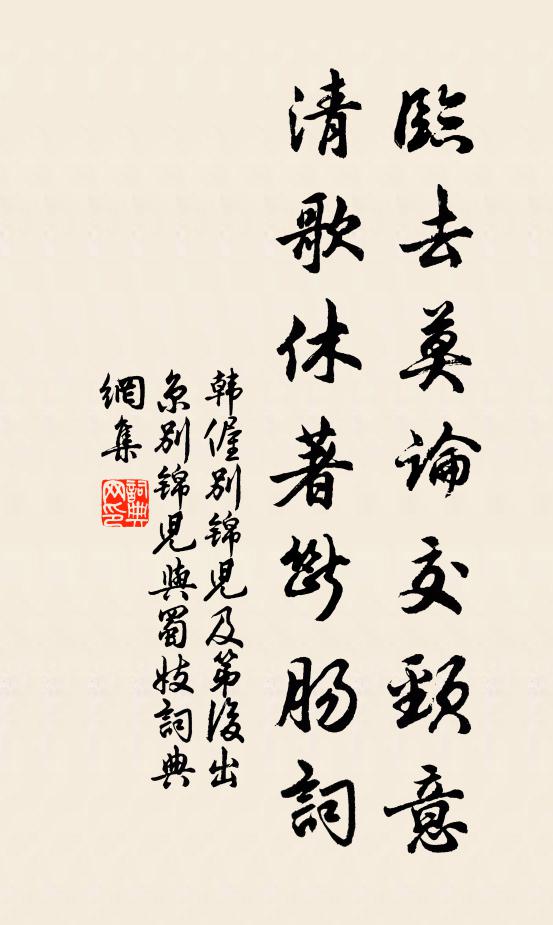 臨去莫論交頸意
清歌休著斷腸詞
韩偓别锦兒及第後出
京别锦兒與蜀妓詞典
網集
詞典
网印